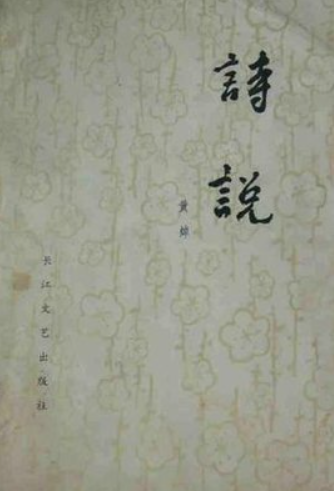 詩説
黄焯
长江文艺出版社